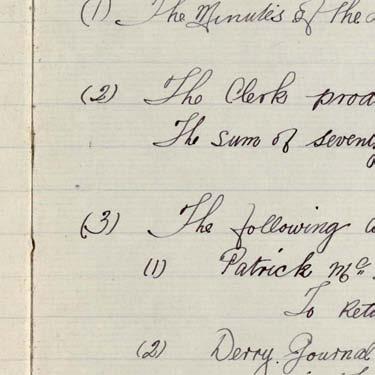 (1) The Minutes of the
(2) The Clerk prod
The sum of seventy
(3) The following
(1) Patrick Mc
To Reta
(2) Derry Journal